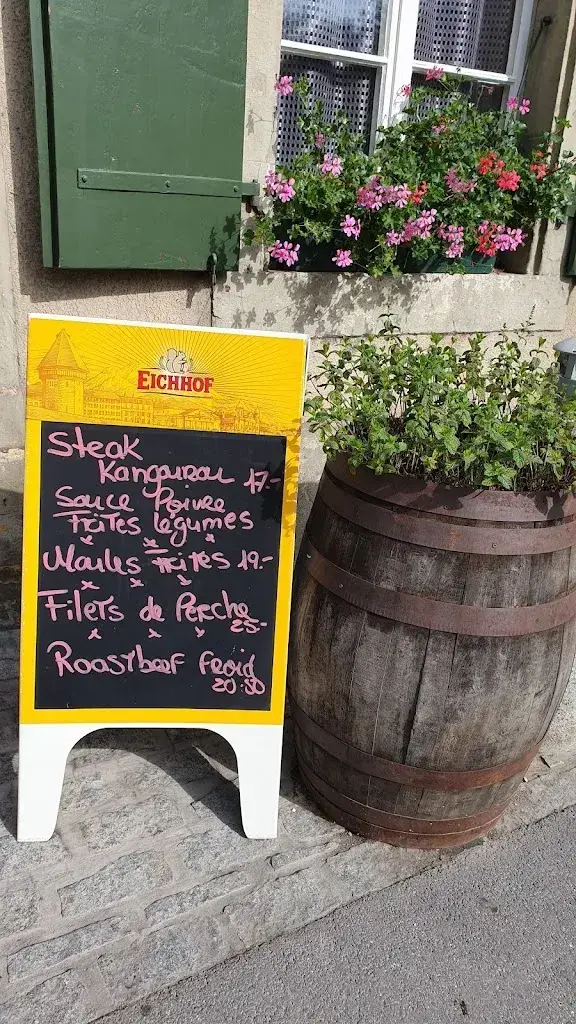 EICHHOF
Steak
Kangourou 17.-
Sauce Poivre
Frites légumes
x x x
Moules frites 19.-
x x x
Filets de Perche
25.-
x x x
Roastbeef froid
20.50